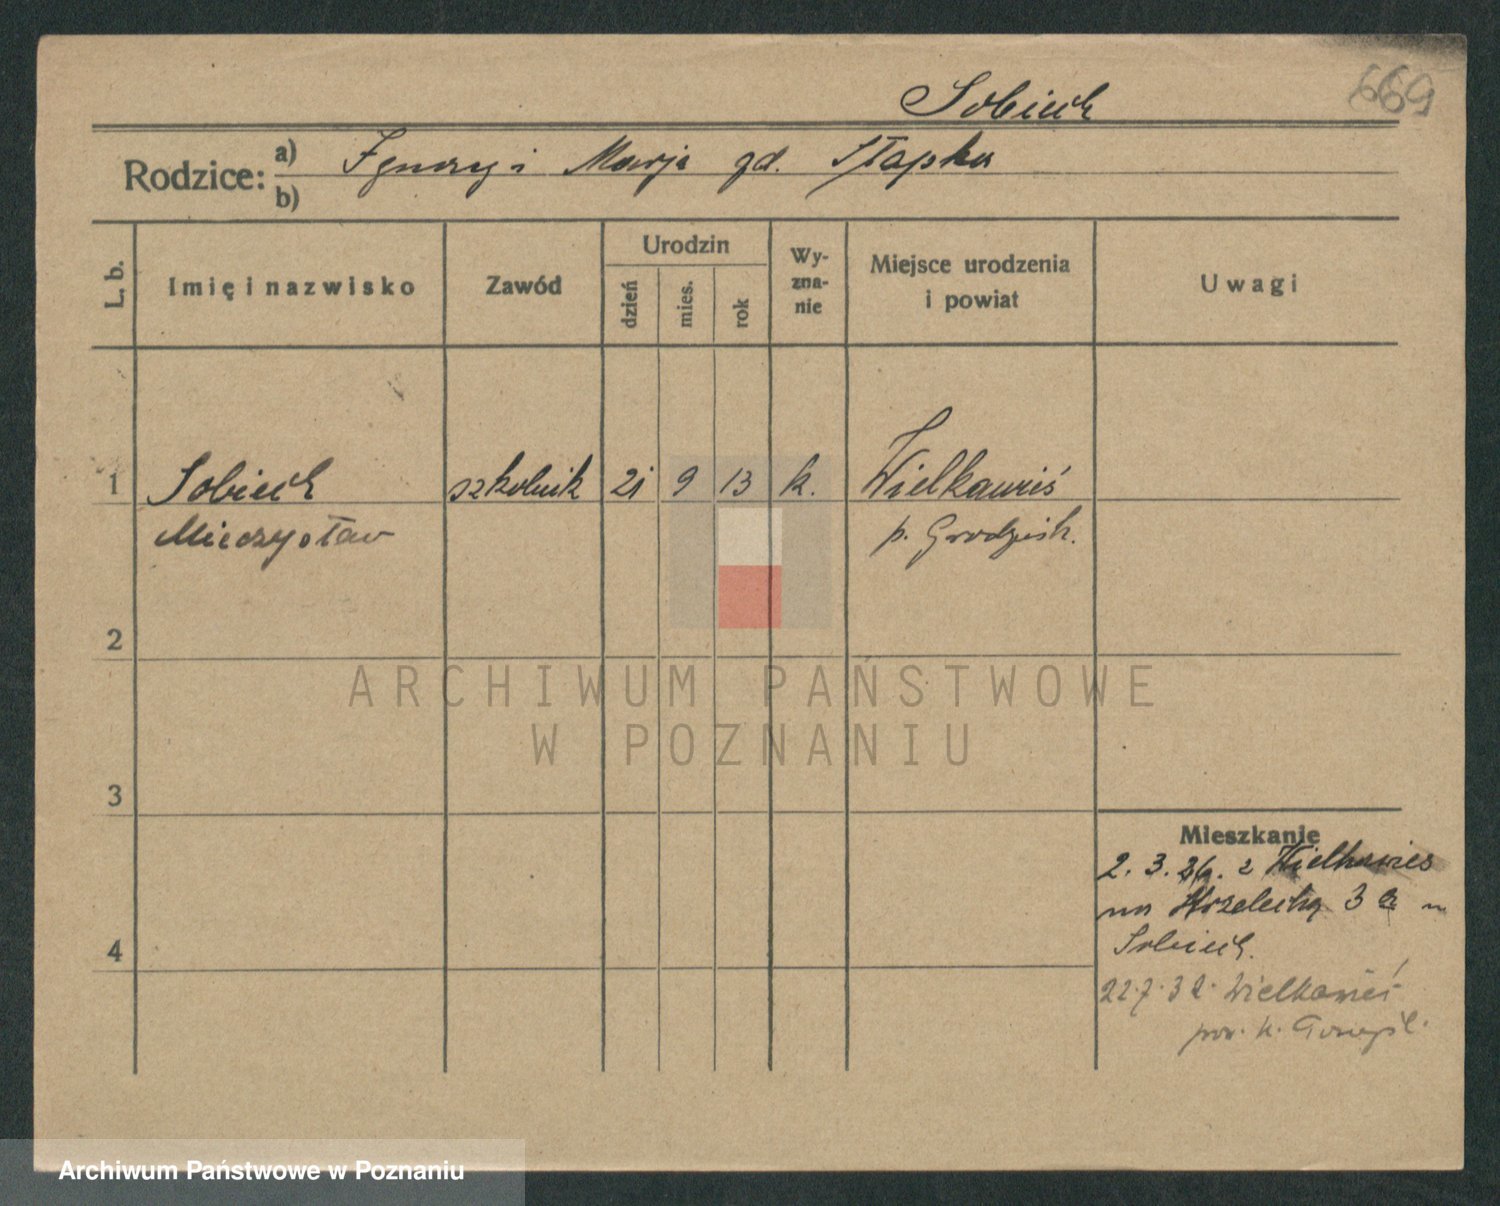 Sobiech
669
Rodzice: a) Ignacy i Marja zd. Słapka
b)
L. b.
Imię i nazwisko
Zawód
Urodzin
dzień
mies.
rok
Wy-
zna-
nie
Miejsce urodzenia
i powiat
Uwagi
1 Sobiech szkolnik 21 9 13 k. Wielkawieś
Mieczysław p. Grodzisk.
2
3
4
Mieszkanie
2. 3. z Wielkawieś
na 3
Sobiech.
22.7.32. Wielkawieś
pow. n.
ARCHIWUM PAŃSTWOWE
W POZNANIU
Archiwum Państwowe w Poznaniu